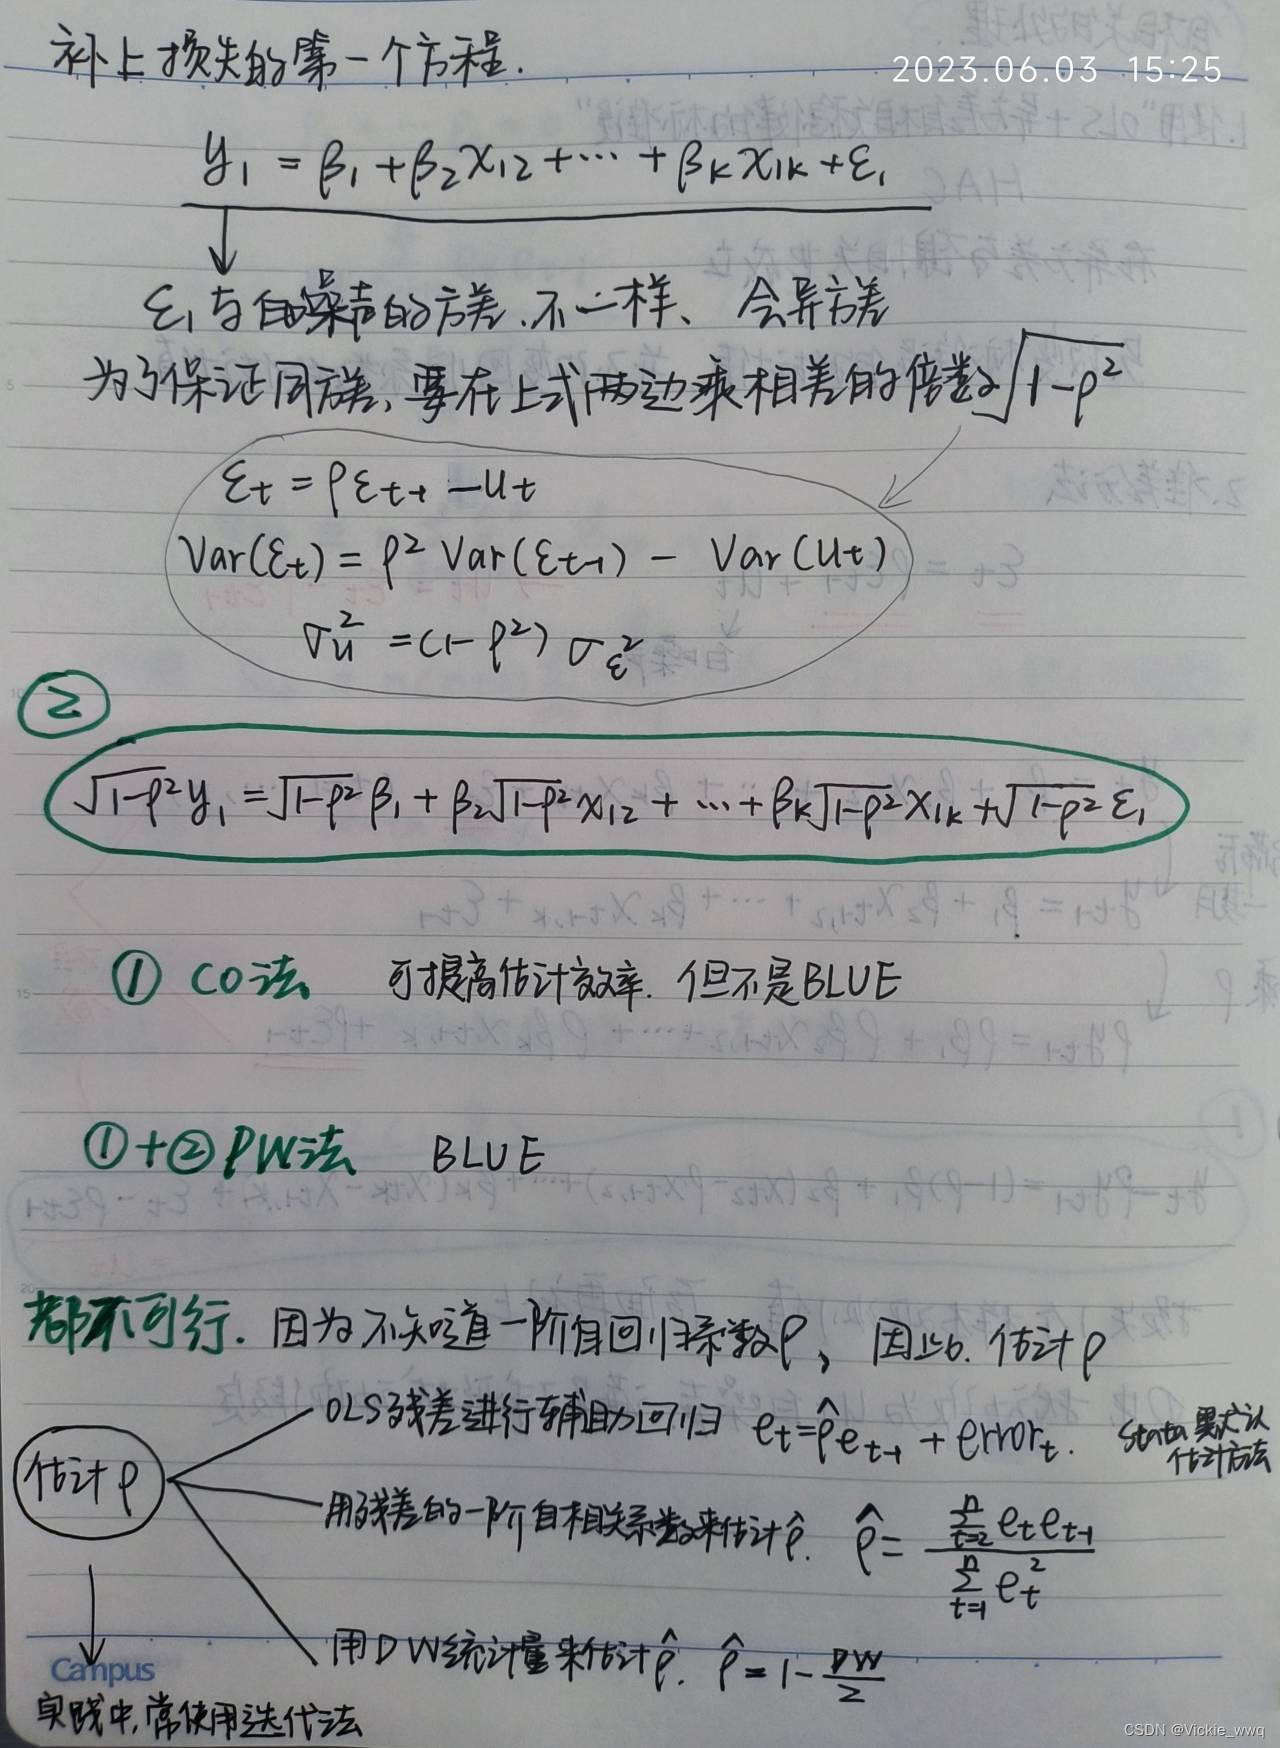 补上损失的第一个方程.
2023.06.03 15:25
y₁ = β₁ + β₂x₁₂ + ⋯ + βₖx₁ₖ + ε₁
ε₁与白噪声的方差不一样、会异方差
为了保证同方差,要在上式两边乘相差的倍数√(1-ρ²)
εt = ρεt-1 - ut
Var(εt) = ρ² Var(εt-1) - Var(ut)
σu² = (1-ρ²) σε²
②
√(1-ρ²) y₁ = √(1-ρ²) β₁ + β₂√(1-ρ²) x₁₂ + ⋯ + βₖ√(1-ρ²) x₁ₖ + √(1-ρ²) ε₁
① CO法 可提高估计效率. 但不是BLUE
①+② PW法 BLUE
都不可行. 因为不知道一阶自回归系数ρ, 因此. 估计ρ
OLS残差进行辅助回归 et = ρ̂et-1 + errort. Stata默认
估计方法
估计ρ
用残差的一阶自相关系数来估计ρ̂. ρ̂ = Σ(t=2→n) et et-1 / Σ(t=1→n) et²
用DW统计量来估计ρ̂. ρ̂ = 1 - DW/2
Campus
实践中,常使用迭代法
CSDN @Vickie_wwq